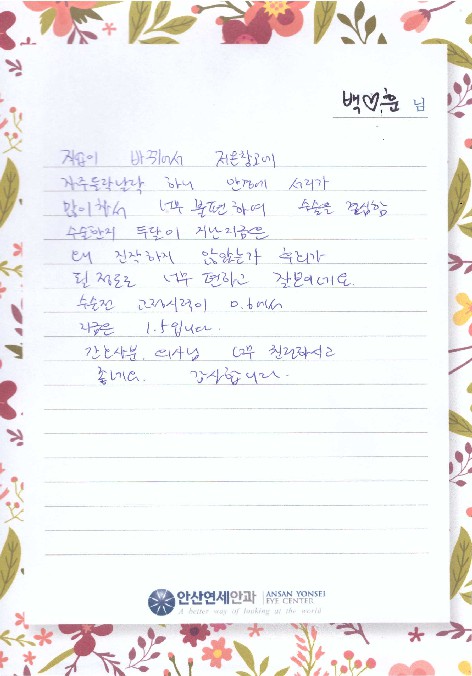 백♡훈 님
직업이 바뀌어서 저온창고에
자주 들락날락 하니 안경에 서리가
많이 차서 너무 불편하여 수술을 결심함
수술한지 두달이 지난 지금은
왜 진작하지 않았는가 후회가
될 정도로 너무 편하고 잘보이네요.
수술전 교정시력이 0.6에서
지금은 1.5입니다.
간호사분, 의사님 너무 친절하시고
좋네요. 감사합니다.
안산연세안과 ANSAN YONSEI
EYE CENTER
A better way of looking at the world